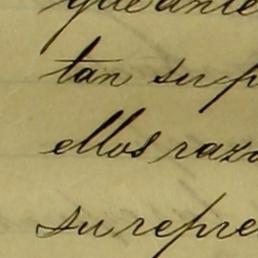 que ante
tan su p
ellos razo
su repre